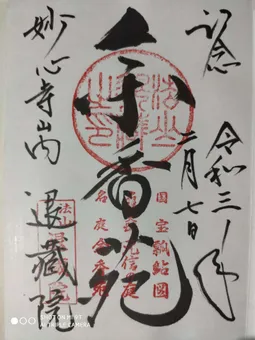 記念
令和三年
二月七日
余香苑
国宝瓢鮎図
名庭余香苑
妙心寺山内
退藏院